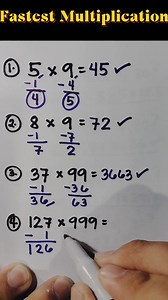 Fastest Multiplication
1. 5 × 9 = 45 ✓
-1 -4
4 5
2. 8 × 9 = 72 ✓
-1 -7
7 2
3. 37 × 99 = 3663 ✓
-1 -36
36 63
4. 127 × 999 =
- 1
126